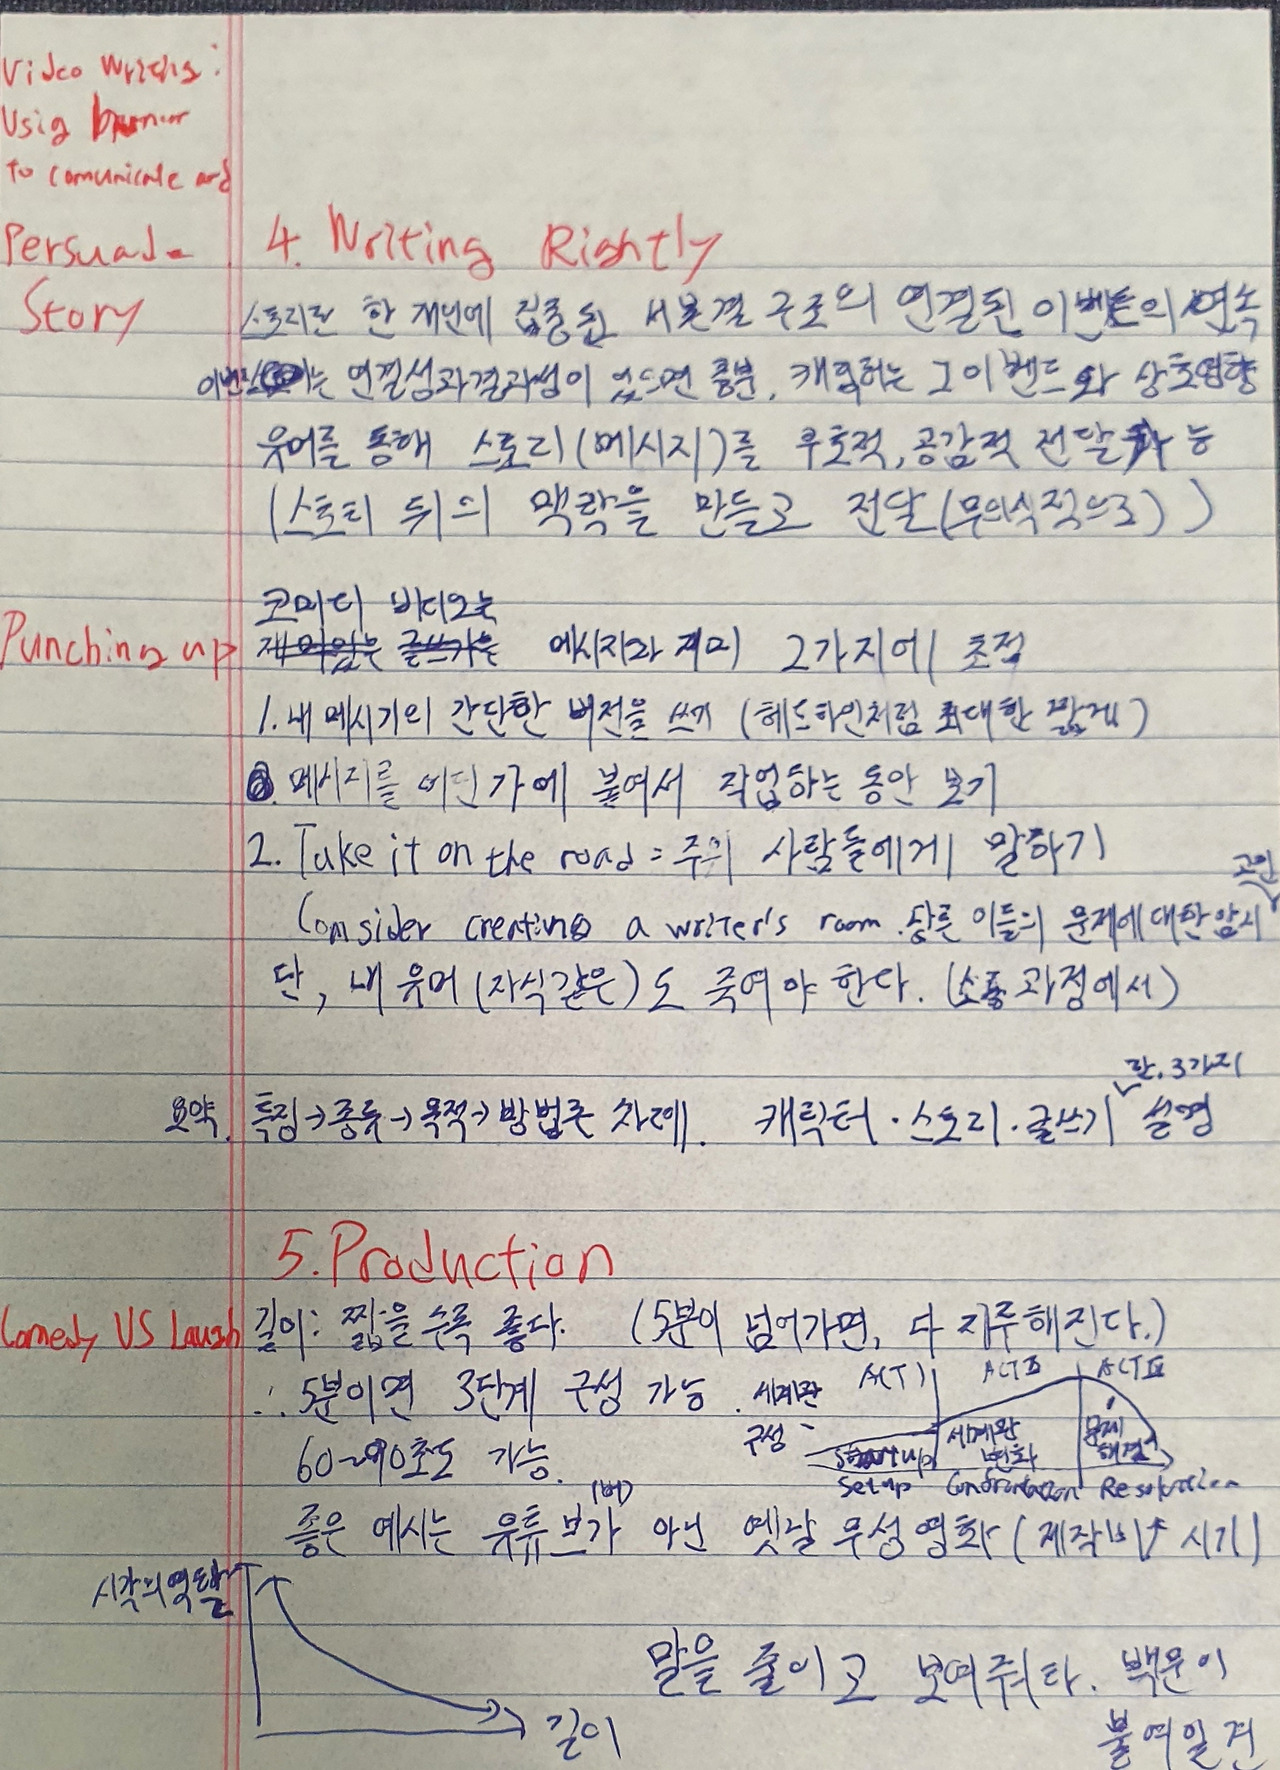 Video Writing:
Usig humor
to comunicate and
Persuade
4. Writing Rightly
Story
스토리란 한 개인에 집중된 서론결 구조의 연결된 이벤트의 연속
이벤트는 연결성과 결과성이 있으면 충분. 캐릭터는 그 이벤트와 상호영향
유머를 통해 스토리(메시지)를 공감적 전달 가능
(스토리 뒤의 맥락을 만들고 전달(무의식적으로))
코미디 비디오는
Punching up 재미있는 글쓰기는 메시지와 재미 2가지에 초점
1. 내 메시지의 간단한 버전을 쓰기 (헤드라인처럼 최대한 짧게)
메시지를 어딘가에 붙여서 작업하는 동안 보기
2. Take it on the road = 주위 사람들에게 말하기
Consider creating a writer's room. 다른 이들의 문제에 대한 암시
단, 내 유머(자식같은)도 죽여야 한다. (소통 과정에서)
란. 3가지
요약. 특징→종류→목적→방법론 차례. 캐릭터·스토리·글쓰기 설명
5. Production
Comedy VS Laugh 길이: 짧을 수록 좋다. (5분이 넘어가면, 다 지루해진다.)
∴ 5분이면 3단계 구성 가능. 세계관 ACT I ACT II ACT III
구성 세계관 문제
60~90초도 가능. startup 변화 해결
Setup Confrontation Resolution
(비)
좋은 예시는 유튜브가 아닌 옛날 무성영화 (제작비↑ 시기)
시각의 역할
말을 줄이고 보여줘라. 백문이
길이 불여일견